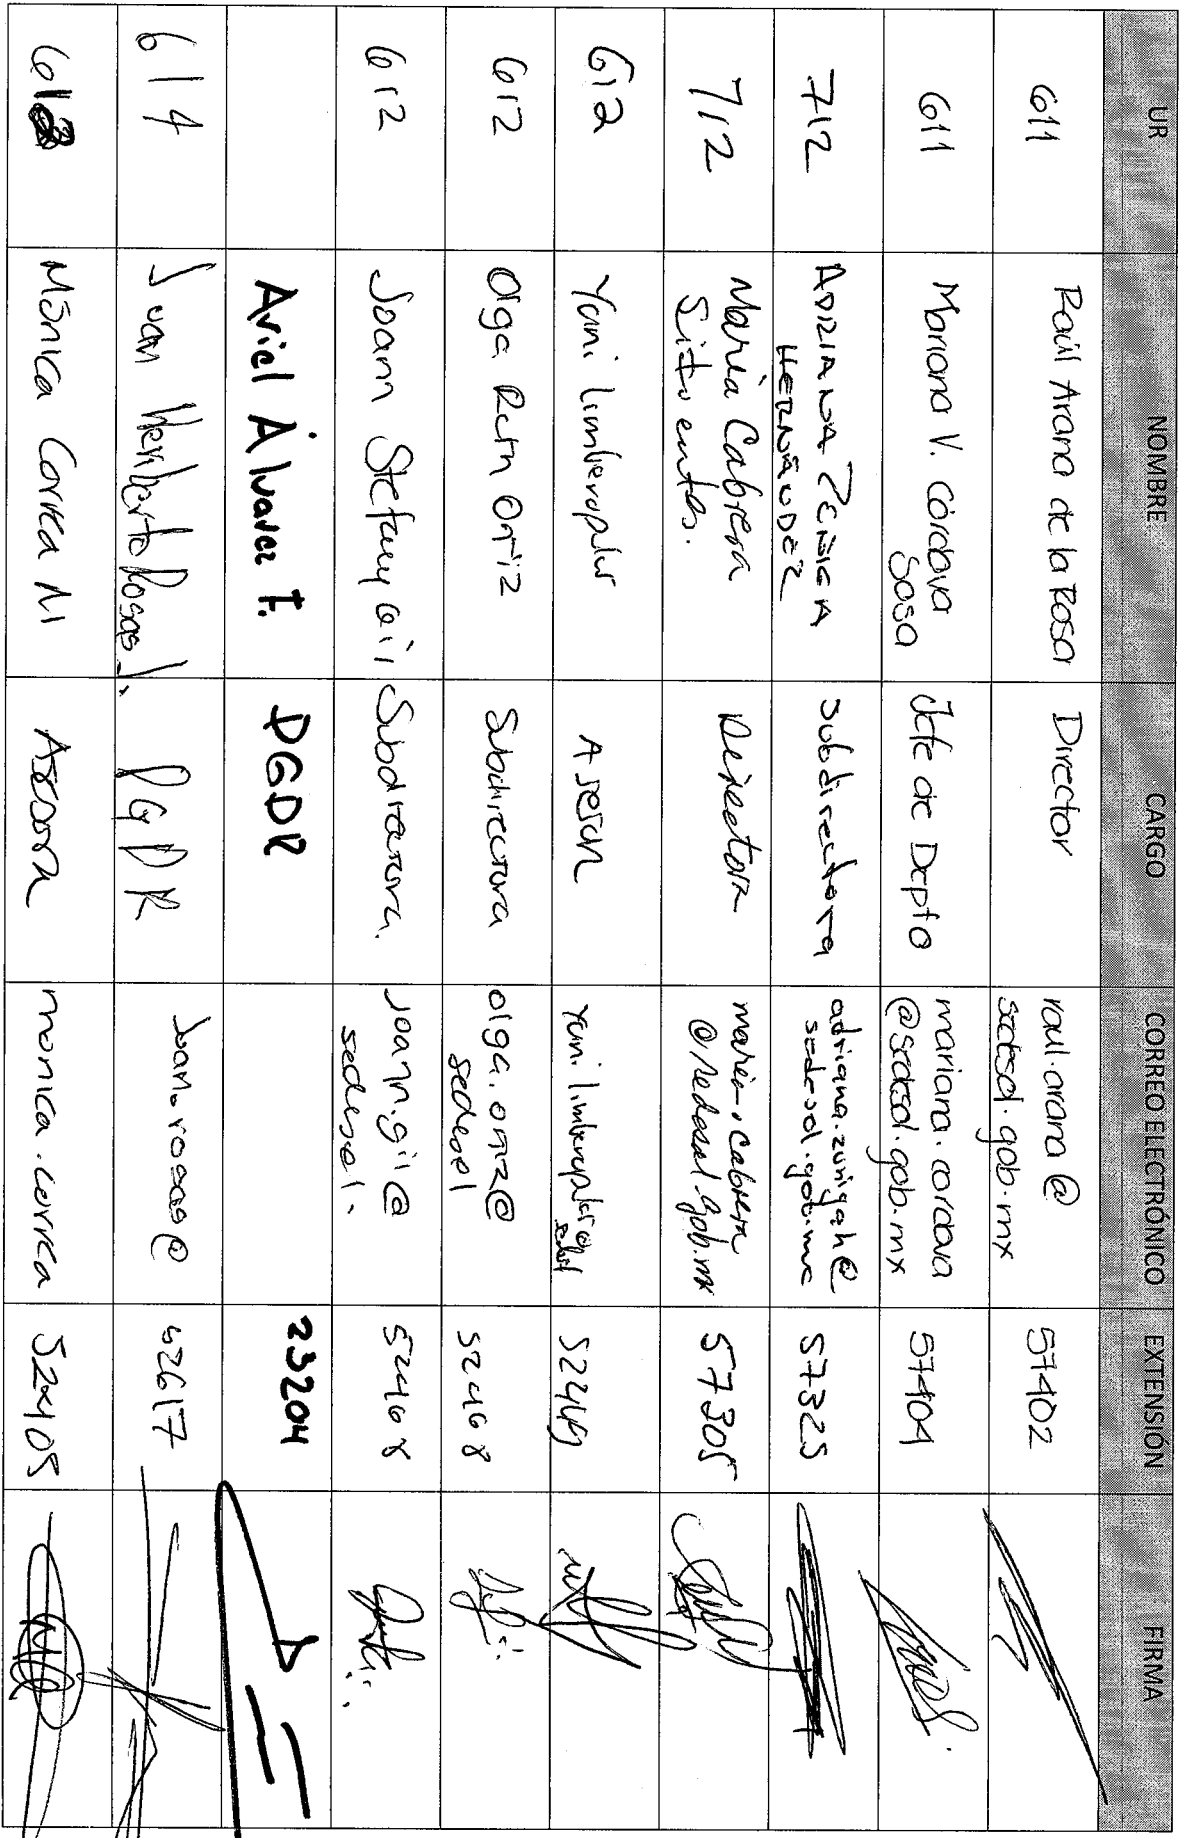 UR NOMBRE CARGO CORREO ELECTRÓNICO EXTENSIÓN FIRMA
611 Raúl Arana de la Rosa Director raul.arana @
sedesol.gob.mx 57402
611 Mariana V. Córdova
Sosa Jefe de Depto mariana.cordova
@sedesol.gob.mx 57404
712 ADRIANA ZÚÑIGA
HERNÁNDEZ subdirectora adriana.zunigah@
sedesol.gob.mx 57325
712 María Cabrera
Sifuentes. Directora maria.cabrera
@sedesol.gob.mx 57305
612 Yani Limberopulos Asesor yani.limberopulos@
sedesol
612 Olga Ortiz Subdirectora olga.ortiz@
sedesol 52468
612 Joann Stefany Gil Subdirectora. joann.gil@
sedesol. 52468
Ariel Álvarez F. DGDR 23204
614 Juan Heriberto Rosas J. DGDR juan.rosas@ 52617
613 Mónica Correa M Asesora monica.correa 52405